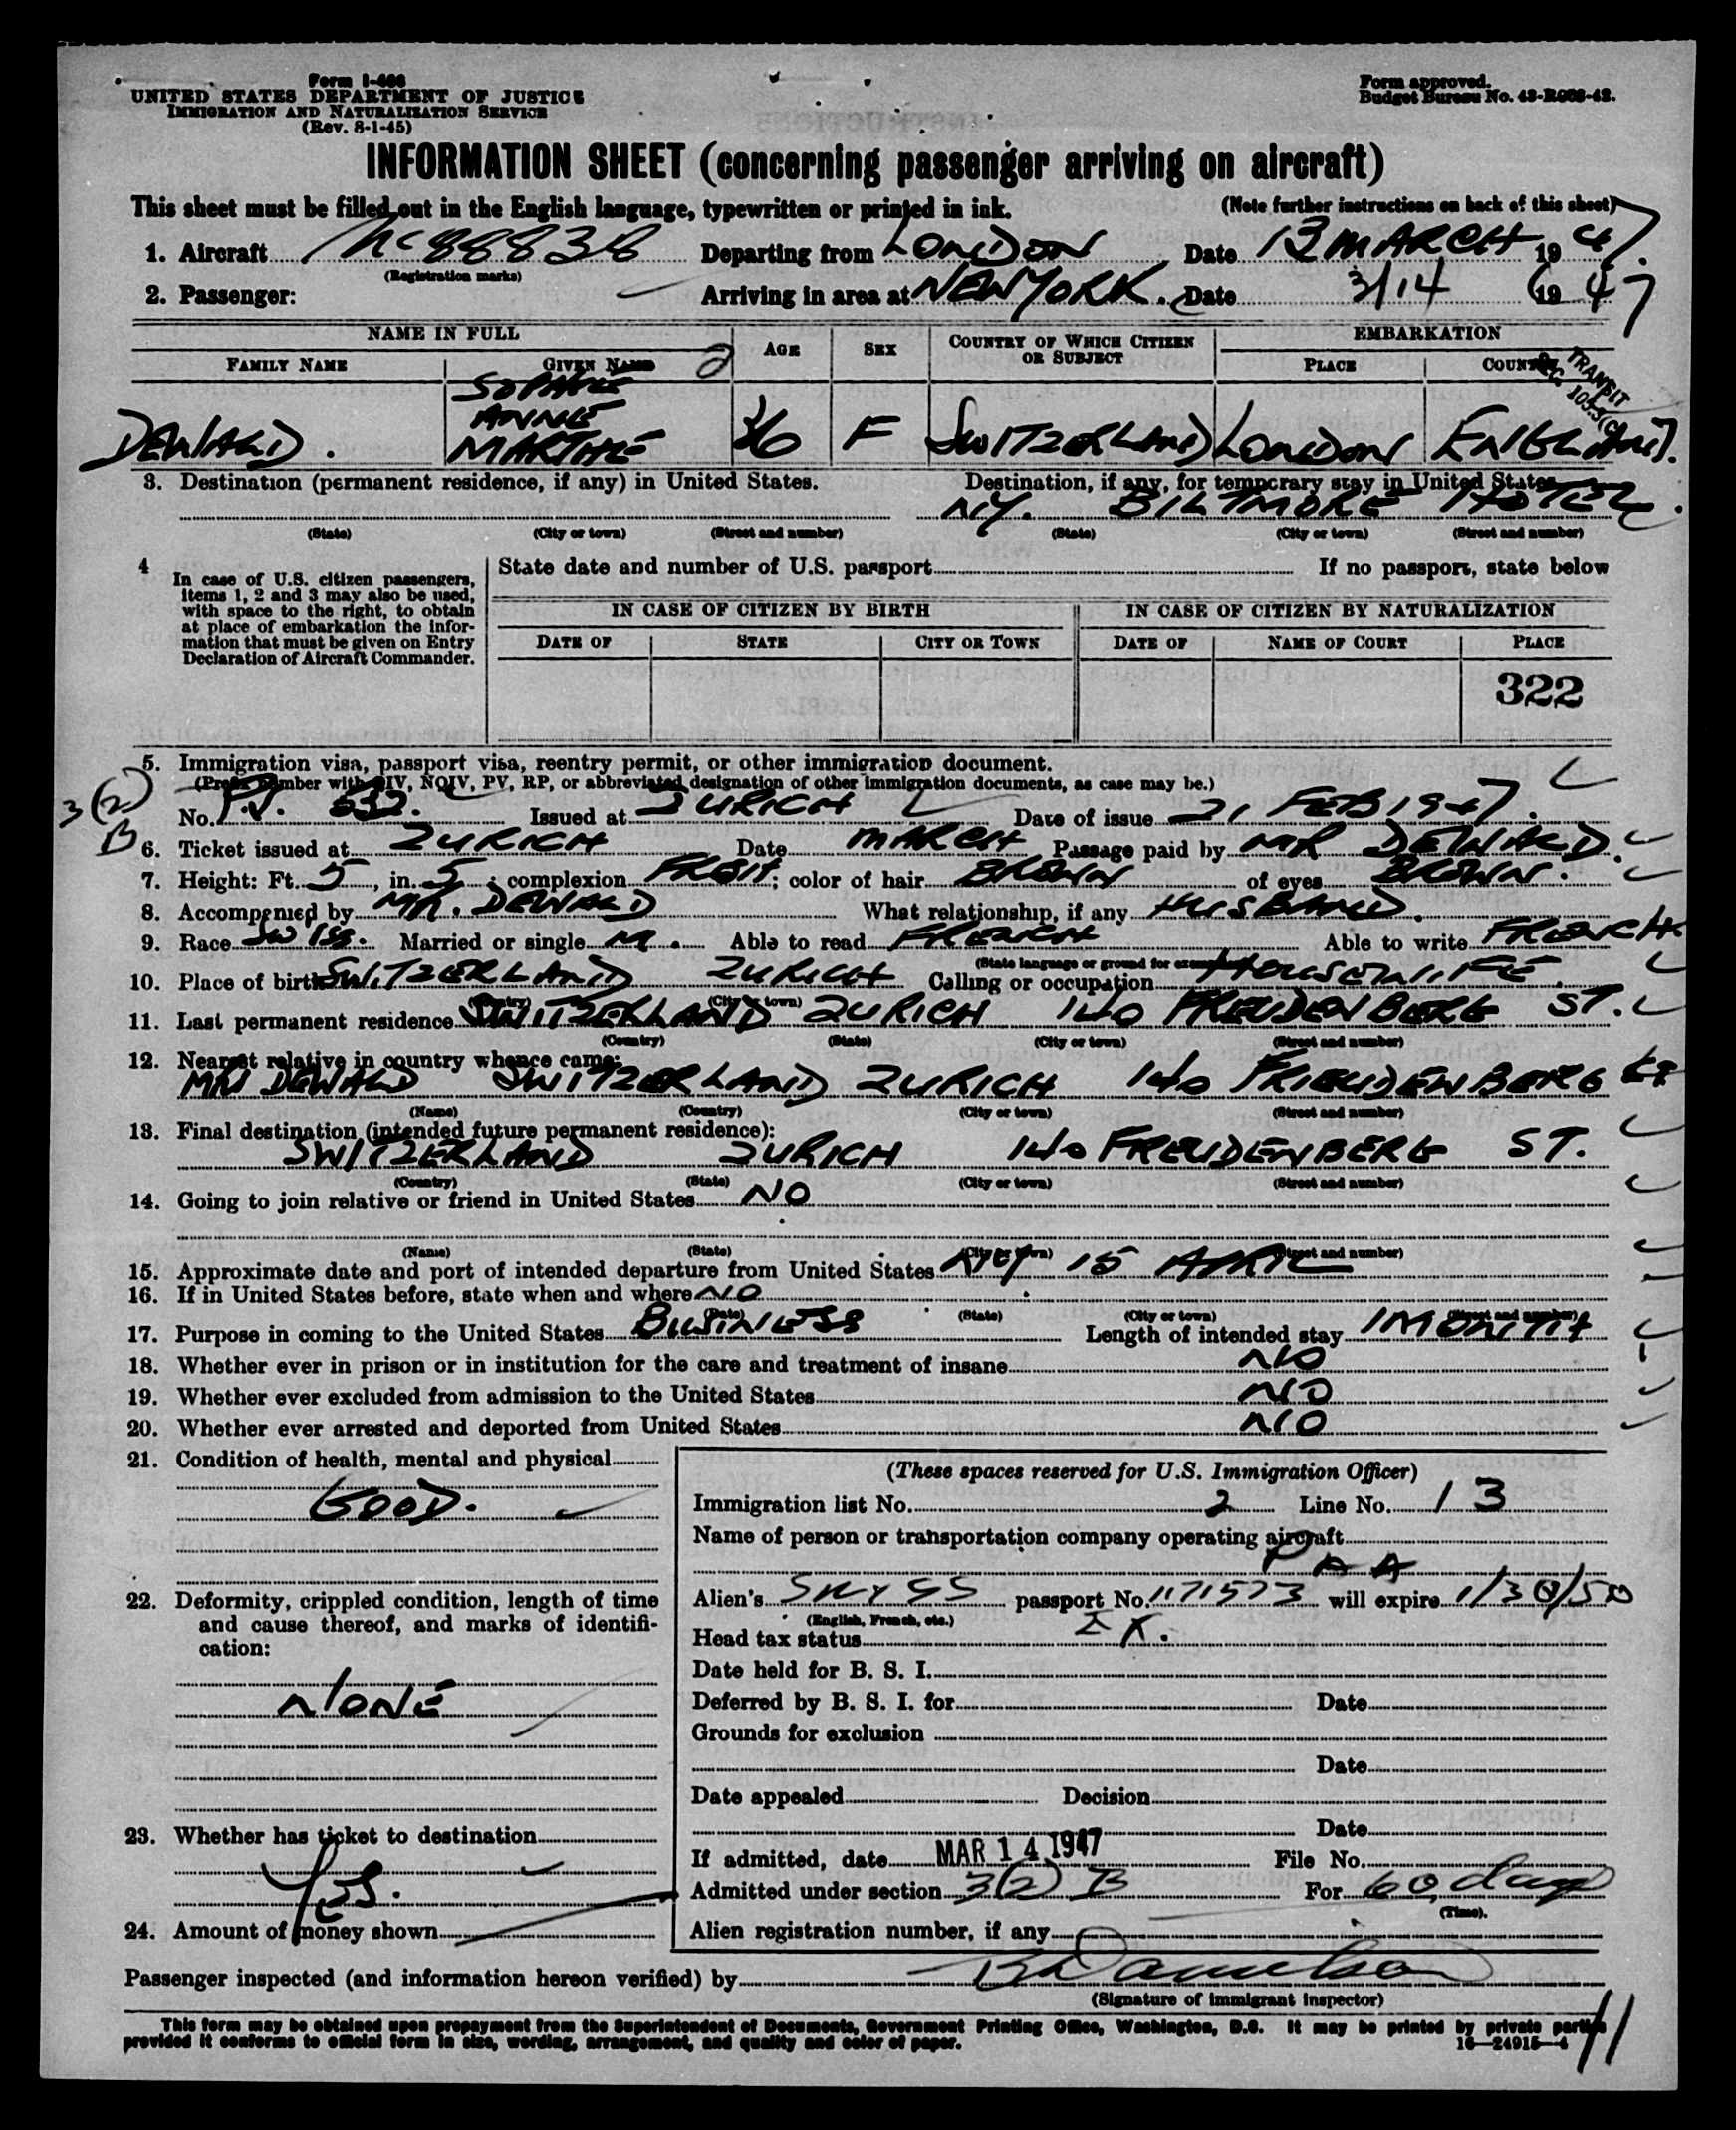 Form I-466
UNITED STATES DEPARTMENT OF JUSTICE
IMMIGRATION AND NATURALIZATION SERVICE
(Rev. 8-1-45)
Form approved.
Budget Bureau No. 43-R063-42.
INFORMATION SHEET (concerning passenger arriving on aircraft)
This sheet must be filled out in the English language, typewritten or printed in ink. (Note further instructions on back of this sheet)
1. Aircraft NC 88838 Departing from LONDON Date 13 MARCH 1947.
(Registration marks)
2. Passenger: Arriving in area at NEW YORK. Date 3/14 1947
NAME IN FULL AGE SEX COUNTRY OF WHICH CITIZEN OR SUBJECT EMBARKATION
FAMILY NAME GIVEN NAME 2 PLACE COUNTRY
TRANSIT
DEWALD. SOPHIE ANNE MARTHE 36 F SWITZERLAND LONDON ENGLAND.
3. Destination (permanent residence, if any) in United States. Destination, if any, for temporary stay in United States
N.Y. BILTMORE HOTEL.
(State) (City or town) (Street and number) (State) (City or town) (Street and number)
4 In case of U.S. citizen passengers, items 1, 2 and 3 may also be used, with space to the right, to obtain at place of embarkation the information that must be given on Entry Declaration of Aircraft Commander.
State date and number of U.S. passport If no passport, state below
IN CASE OF CITIZEN BY BIRTH IN CASE OF CITIZEN BY NATURALIZATION
DATE OF STATE CITY OR TOWN DATE OF NAME OF COURT PLACE
322
5. Immigration visa, passport visa, reentry permit, or other immigration document.
(Prefix number with QIV, NQIV, PV, RP, or abbreviated designation of other immigration documents, as case may be.)
3(2) B
No. P.V. 632. Issued at ZURICH Date of issue 21 FEB 1947.
6. Ticket issued at ZURICH Date MARCH Passage paid by MR DEWALD.
7. Height: Ft. 5, in. 5; complexion FRESH; color of hair BROWN of eyes BROWN.
8. Accompanied by MR. DEWALD What relationship, if any HUSBAND.
9. Race SWISS. Married or single M. Able to read FRENCH Able to write FRENCH
(State language or ground for exemption)
10. Place of birth SWITZERLAND ZURICH Calling or occupation HOUSEWIFE.
(Country) (City or town)
11. Last permanent residence SWITZERLAND ZURICH 140 FREUDENBERG ST.
(Country) (State) (City or town) (Street and number)
12. Nearest relative in country whence came:
MR DEWALD SWITZERLAND ZURICH 140 FRIEUDENBERG ST
(Name) (Country) (City or town) (Street and number)
13. Final destination (intended future permanent residence):
SWITZERLAND ZURICH 140 FREUDENBERG ST.
(Country) (State) (City or town) (Street and number)
14. Going to join relative or friend in United States NO
(Name) (State) (City or town) (Street and number)
15. Approximate date and port of intended departure from United States N.Y. 15 APRIL
16. If in United States before, state when and where NO
(Date) (State) (City or town) (Street and number)
17. Purpose in coming to the United States BUSINESS Length of intended stay 1 MONTH
18. Whether ever in prison or in institution for the care and treatment of insane NO
19. Whether ever excluded from admission to the United States NO
20. Whether ever arrested and deported from United States NO
21. Condition of health, mental and physical
GOOD.
22. Deformity, crippled condition, length of time and cause thereof, and marks of identification:
NONE
23. Whether has ticket to destination
YES.
24. Amount of money shown
(These spaces reserved for U.S. Immigration Officer)
Immigration list No. 2 Line No. 13
Name of person or transportation company operating aircraft
PAA
Alien's SWISS passport No. 1171573 will expire 1/30/50
(English, French, etc.)
Head tax status EX.
Date held for B. S. I.
Deferred by B. S. I. for Date
Grounds for exclusion
Date
Date appealed Decision
Date
If admitted, date MAR 14 1947 File No.
Admitted under section 3(2) B For 60 days
(Time).
Alien registration number, if any
Passenger inspected (and information hereon verified) by
(Signature of immigrant inspector)
This form may be obtained upon prepayment from the Superintendent of Documents, Government Printing Office, Washington, D.C. It may be printed by private parties
provided it conforms to official form in size, wording, arrangement, and quality and color of paper. 16—24915-4
11